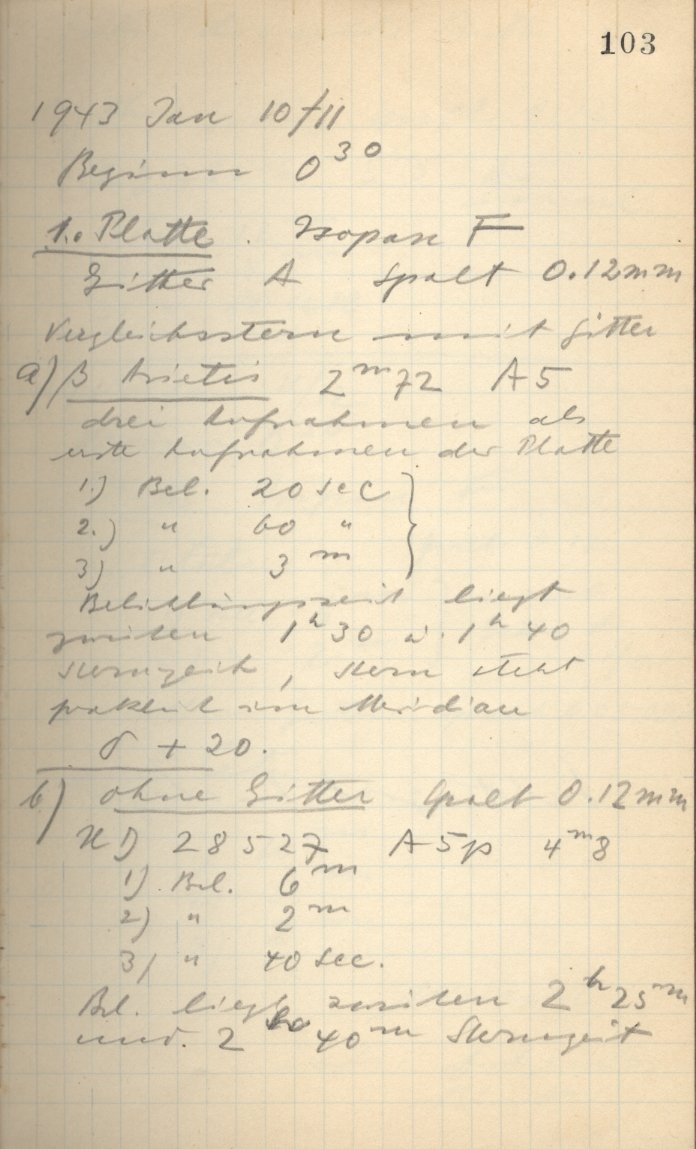 103
1943 Jan 10/11
Beginn 0³⁰
1. Platte. Isopan F
Gitter A Spalt 0.12mm
Vergleichsstern mit Gitter
a) β Arietis 2ᵐ72 A5
drei Aufnahmen als
erste Aufnahmen der Platte
1.) Bel. 20 sec
2.) " 60 "
3) " 3ᵐ
Belichtungszeit liegt
zwischen 1ʰ30 u. 1ʰ40
Sternzeit, Stern steht
praktisch im Meridian
δ + 20.
b) ohne Gitter Spalt 0.12mm
HD 28527 A5p 4ᵐ8
1) Bel. 6ᵐ
2) " 2ᵐ
3) " 40 sec.
Bel. liegt zwischen 2ʰ25ᵐ
und 2ʰ 40ᵐ Sternzeit